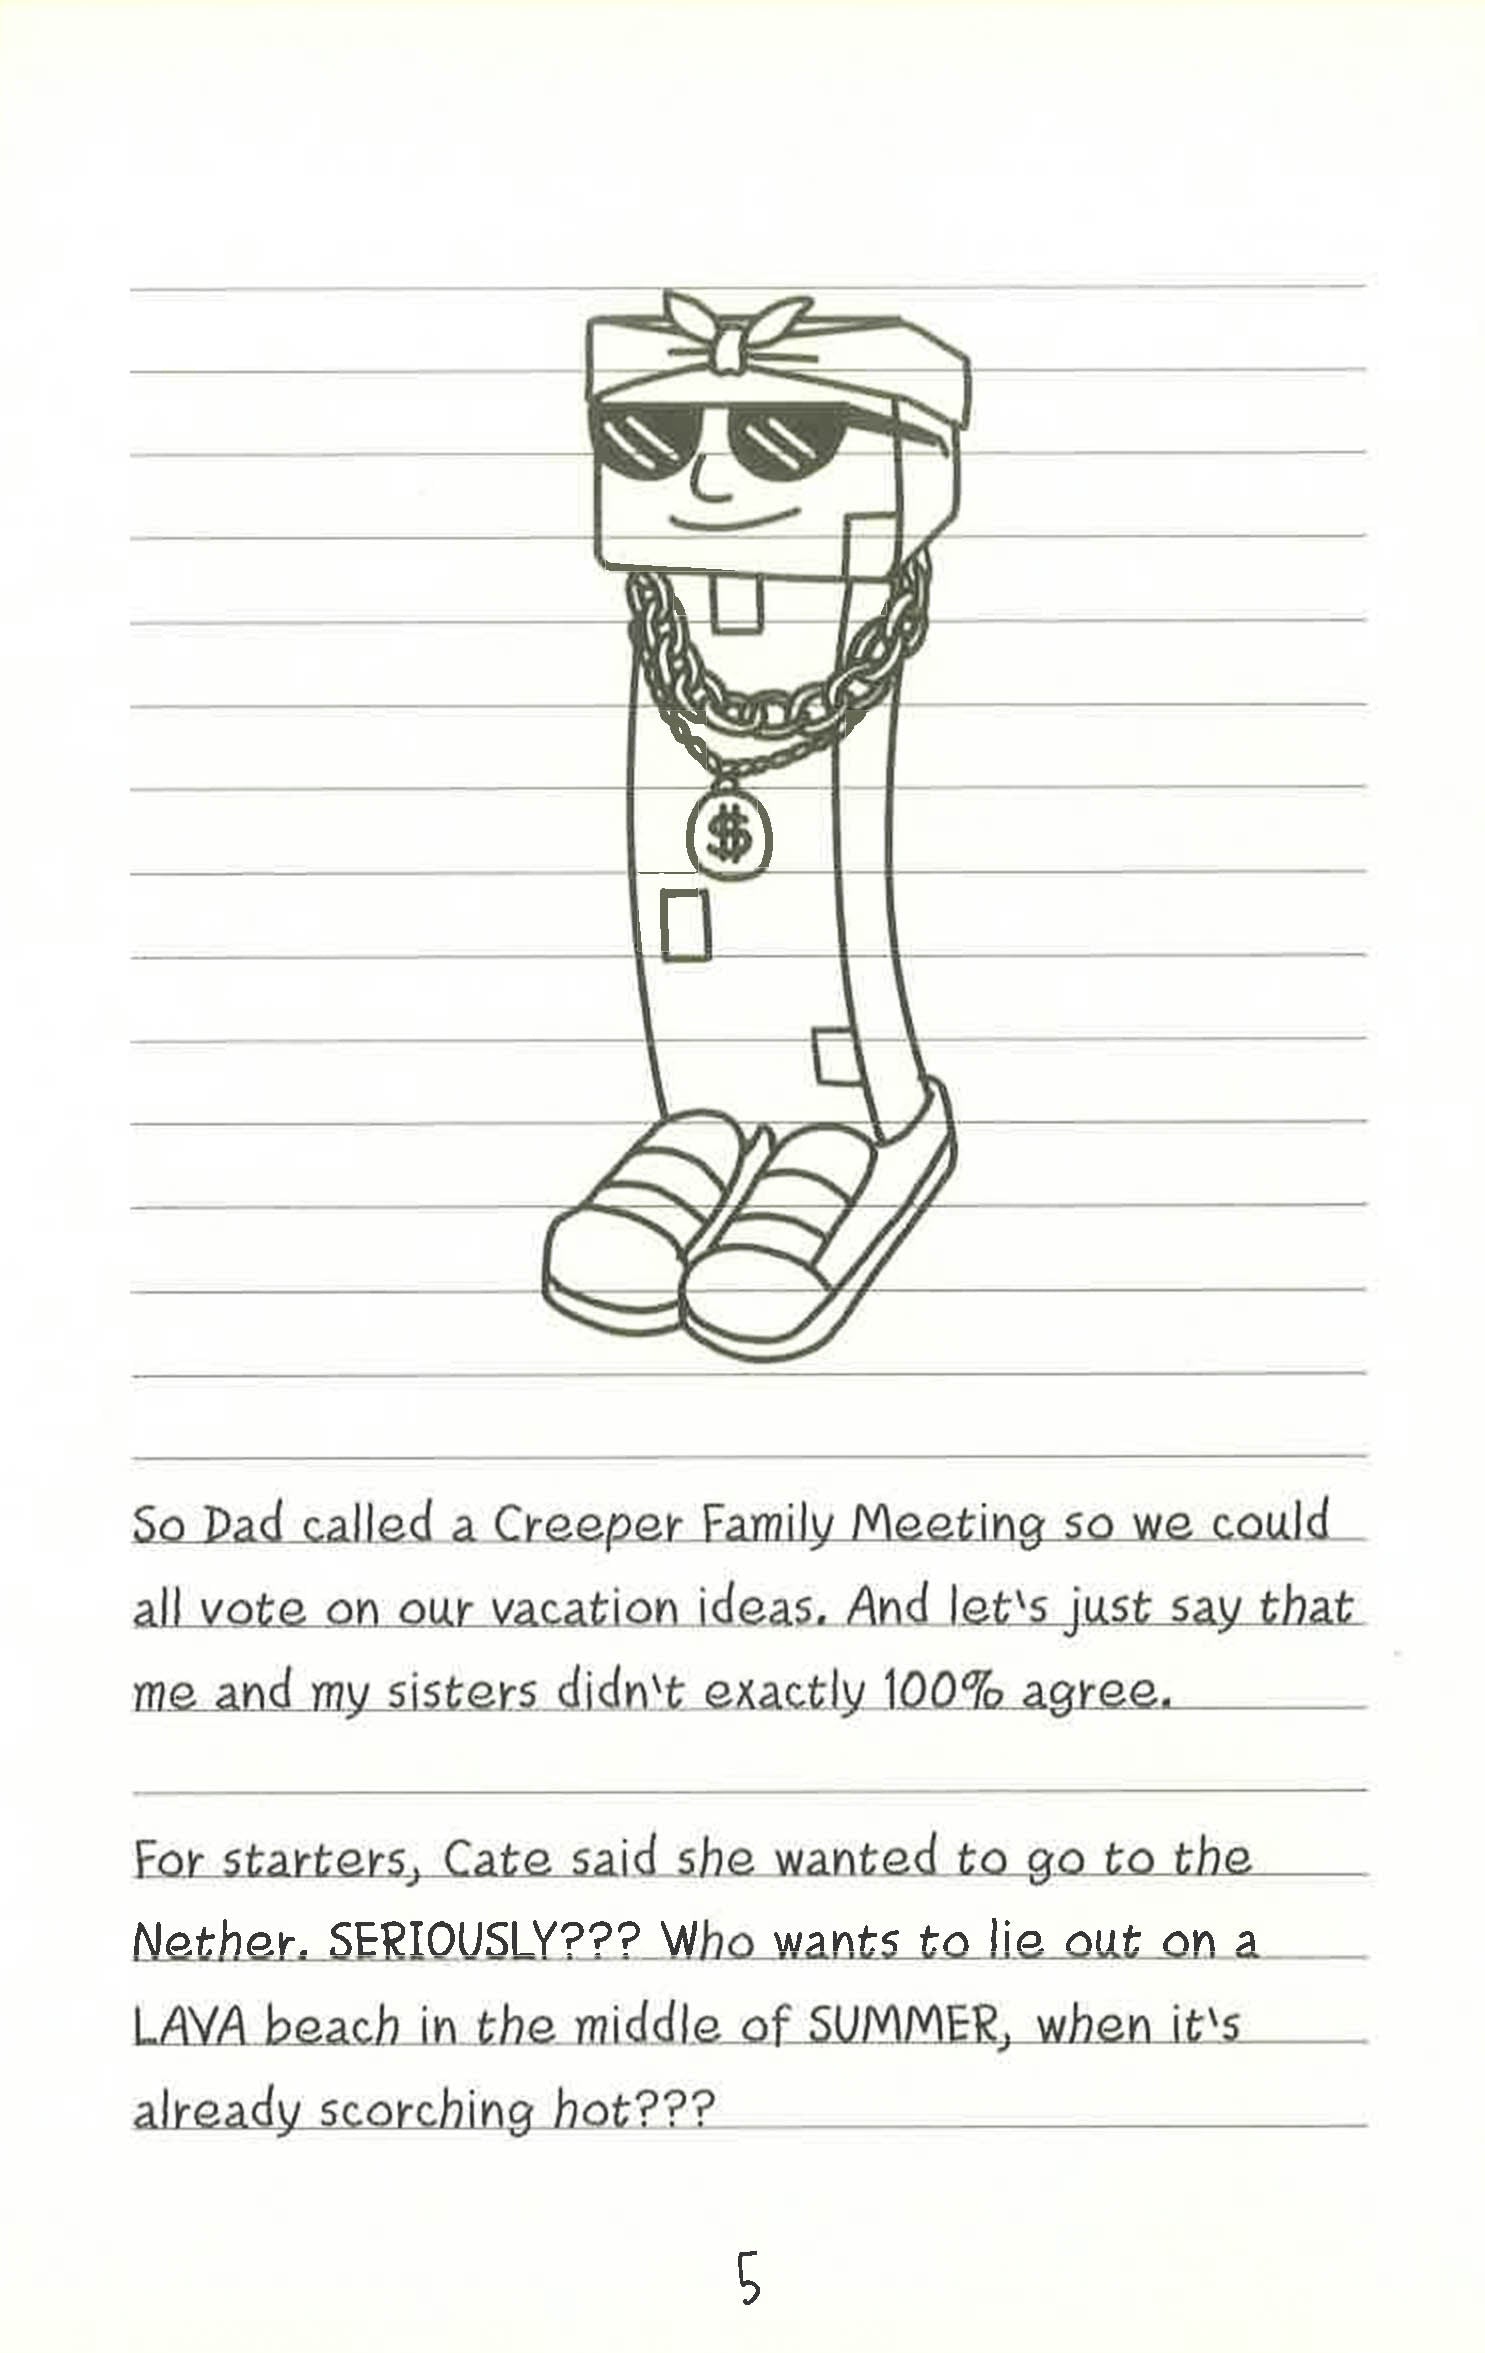 $
So Dad called a Creeper Family Meeting so we could
all vote on our vacation ideas. And let's just say that
me and my sisters didn't exactly 100% agree.
For starters, Cate said she wanted to go to the
Nether. SERIOUSLY??? Who wants to lie out on a
LAVA beach in the middle of SUMMER, when it's
already scorching hot???
5